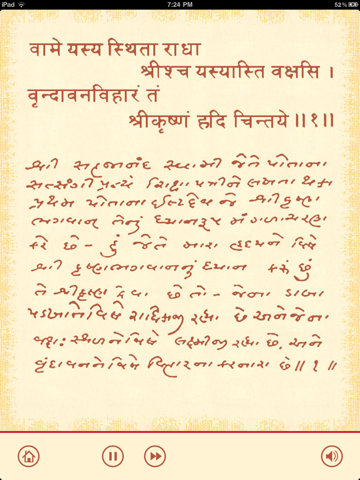 iPad 7:24 PM 92%
वामे यस्य स्थिता राधा
श्रीश्च यस्यास्ति वक्षसि ।
वृन्दावनविहारं तं
श्रीकृष्णं हृदि चिन्तये ॥१॥
શ્રી સહજાનંદ સ્વામી જે તે પોતાના
સત્સંગી પ્રત્યે શિક્ષાપત્રીને લખતા થકા
પ્રથમ પોતાના ઈષ્ટદેવ જે શ્રી કૃષ્ણ
ભગવાન તેનું ધ્યાનરૂપ મંગળાચરણ
કરે છે – હું જે તે મારા હૃદયને વિષે
શ્રી કૃષ્ણ ભગવાનનું ધ્યાન કરું છું
તે શ્રી કૃષ્ણ કેવા છે તો – જેના ડાબા
પડખાને વિષે રાધિકાજી રહ્યા છે અને જેના
વક્ષઃસ્થળને વિષે લક્ષ્મીજી રહ્યા છે, અને
વૃંદાવનને વિષે વિહારના કરનારા છે॥૧॥